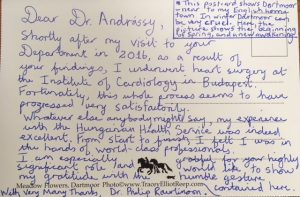 Dear Dr. Andrássy,
Shortly after my visit to your
Department in 2016, as a result of
your findings, I underwent heart surgery at
the Institute of Cardiology in Budapest.
Fortunately, this whole process seems to have
progressed very satisfactorily.
Whatever else anybody might say, my experience
with the Hungarian Health Service was indeed
excellent. From start to finish, I felt I was in
the hands of world-class professionals.
I am especially grateful for your highly
significant role and would like to show
my gratitude with the humble gesture
contained here.
With Very Many Thanks, Dr. Philip Rawlinson.
This postcard shows Dartmoor
near to my English home
town. In winter Dartmoor can
be very cruel. But the
picture shows the beginning
of Spring, and a new awakening
Meadow Flowers, Dartmoor Photo©www.TracyElliotReep.com